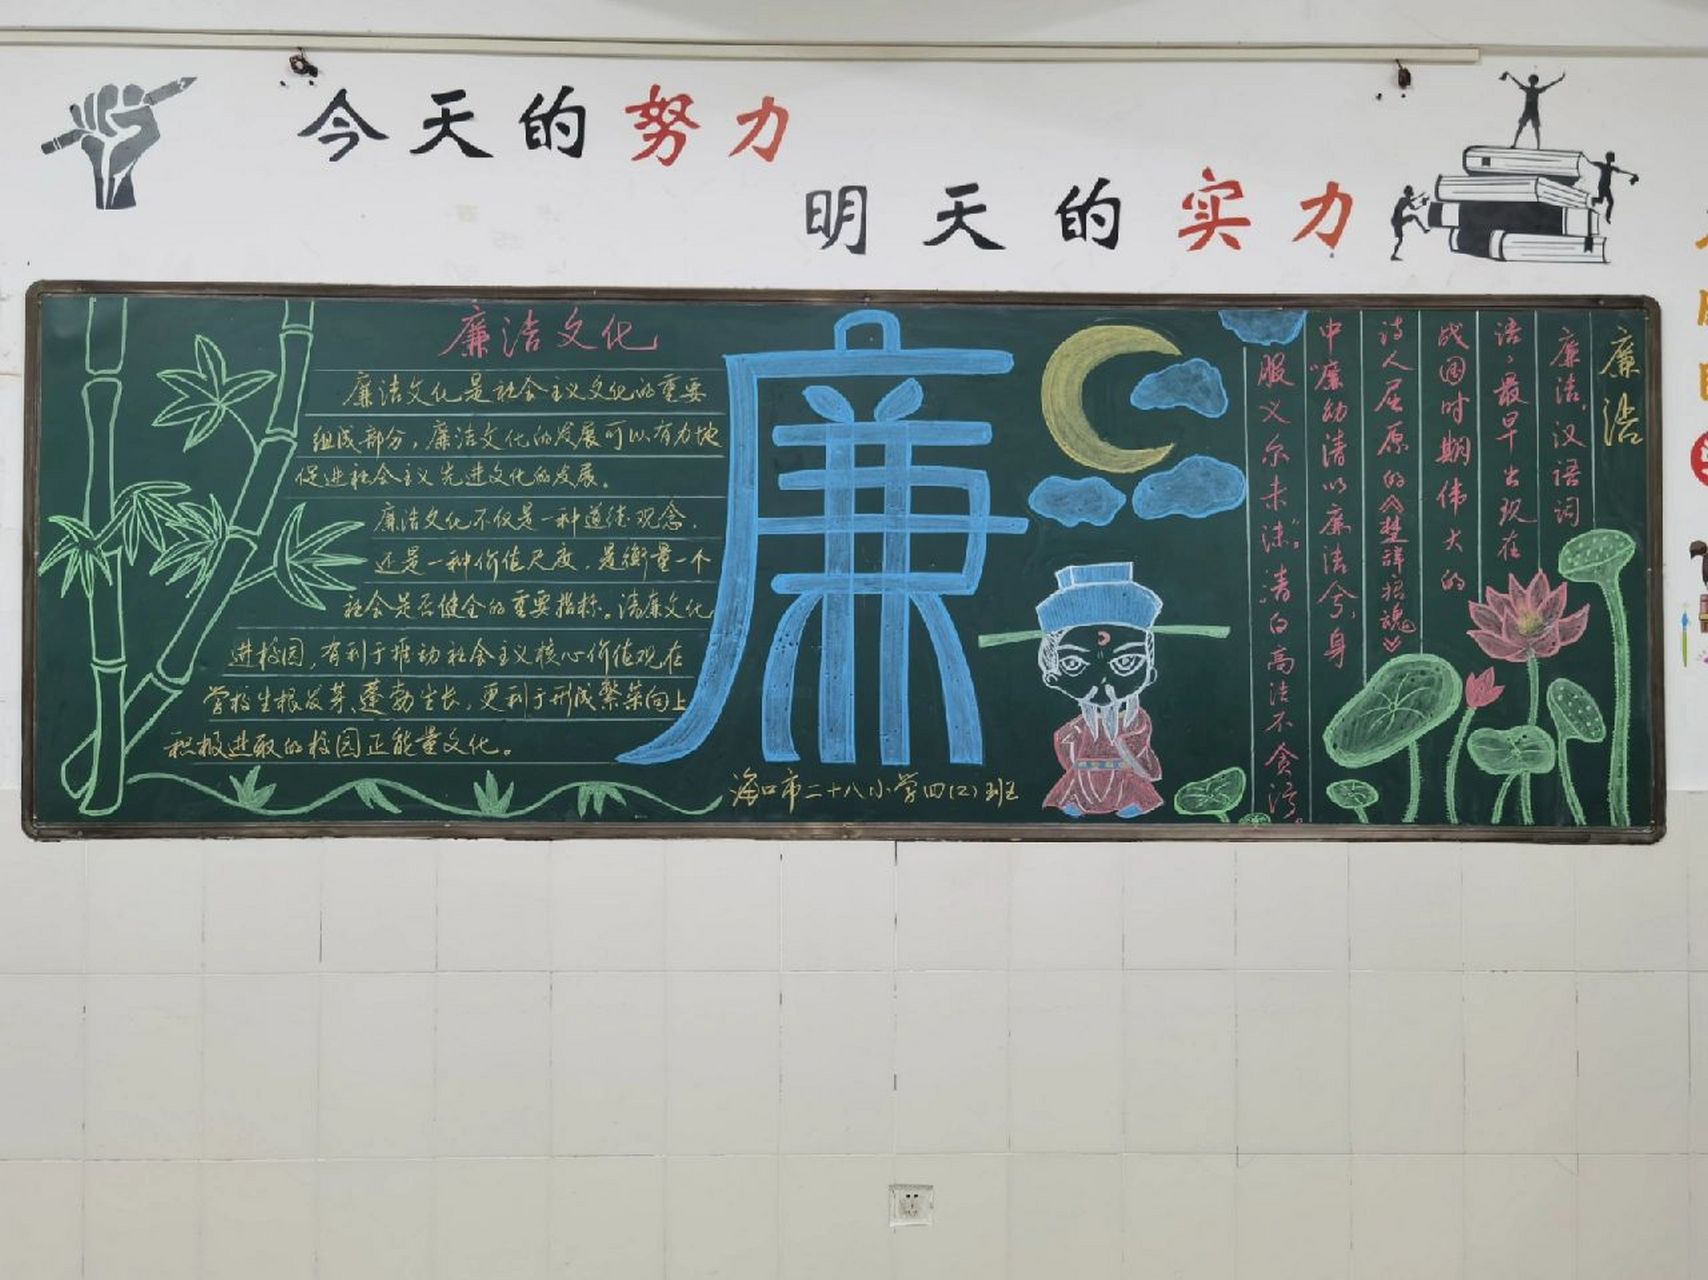 今天的努力
明天的实力
廉洁文化
廉洁文化是社会主义文化的重要
组成部分，廉洁文化的发展可以有力地
促进社会主义先进文化的发展。
廉洁文化不仅是一种道德观念，
还是一种价值尺度，是衡量一个
社会是否健全的重要指标。洁廉文化
进校园，有利于推动社会主义核心价值观在
学校生根发芽、蓬勃生长，更利于形成繁荣向上
积极进取的校园正能量文化。
廉
海口市二十八小学四(2)班
廉洁
廉洁，汉语词
语，最早出现在
战国时期伟大的
诗人屈原的《楚辞·招魂》
中“廉幼清以廉洁兮，身
服义尔未沫”。清白高洁不贪污。